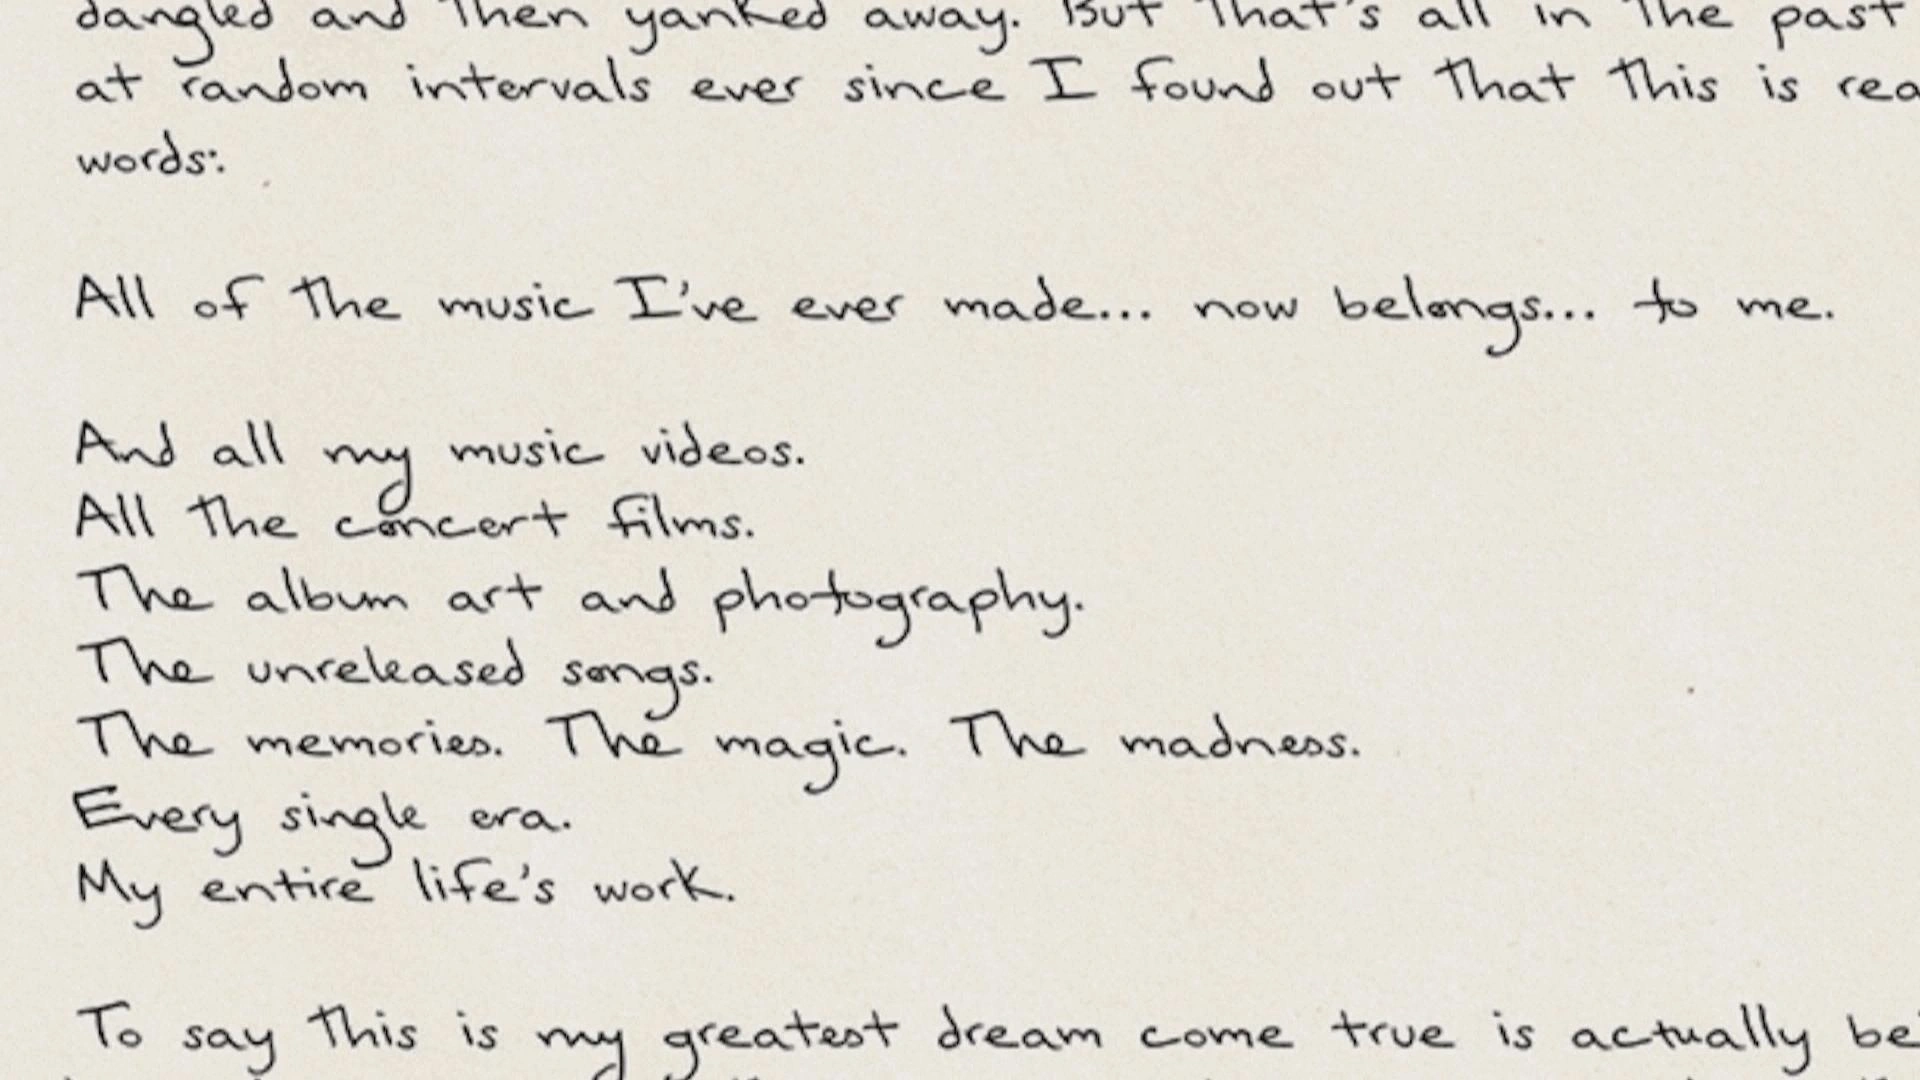 dangled and then yanked away. But that's all in the past
at random intervals ever since I found out that this is rea
words:
All of the music I've ever made... now belongs... to me.
And all my music videos.
All the concert films.
The album art and photography.
The unreleased songs.
The memories. The magic. The madness.
Every single era.
My entire life's work.
To say this is my greatest dream come true is actually be